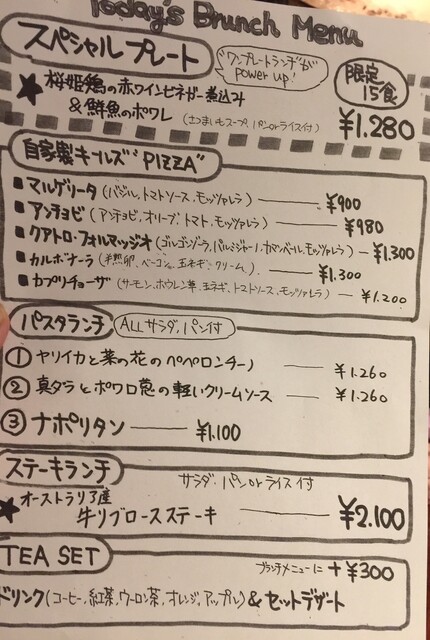 Today's Brunch Menu
スペシャルプレート
"ワンプレートランチ"が
power up!
限定
15食
★桜姫鶏の赤ワインビネガー煮込み
&鮮魚のポワレ (さつまいもスープ、パンorライス付) ¥1.280
自家製キールズ"PIZZA"
■マルゲリータ(バジル,トマトソース,モッツァレラ) ― ¥900
■アンチョビ(アンチョビ,オリーブ,トマト,モッツァレラ) ― ¥980
■クアトロ・フォルマッジオ(ゴルゴンゾーラ,パルミジャーノ,カマンベール,モッツァレラ) ― ¥1.300
■カルボナーラ(半熟卵,ベーコン,玉ネギ,クリーム) ― ¥1.300
■カプリチョーザ(サーモン,ホウレン草,玉ネギ,トマトソース,モッツァレラ) ― ¥1.200
パスタランチ ALLサラダ,パン付
①ヤリイカと菜の花のペペロンチーノ ― ¥1.260
②真タラとポワロ葱の軽いクリームソース ― ¥1.260
③ナポリタン ― ¥1.100
ステーキランチ サラダ、パンorライス付
★オーストラリア産
牛リブロースステーキ ― ¥2.100
TEA SET ブランチメニューに +¥300
ドリンク(コーヒー,紅茶,ウーロン茶,オレンジ,アップル)&セットデザート